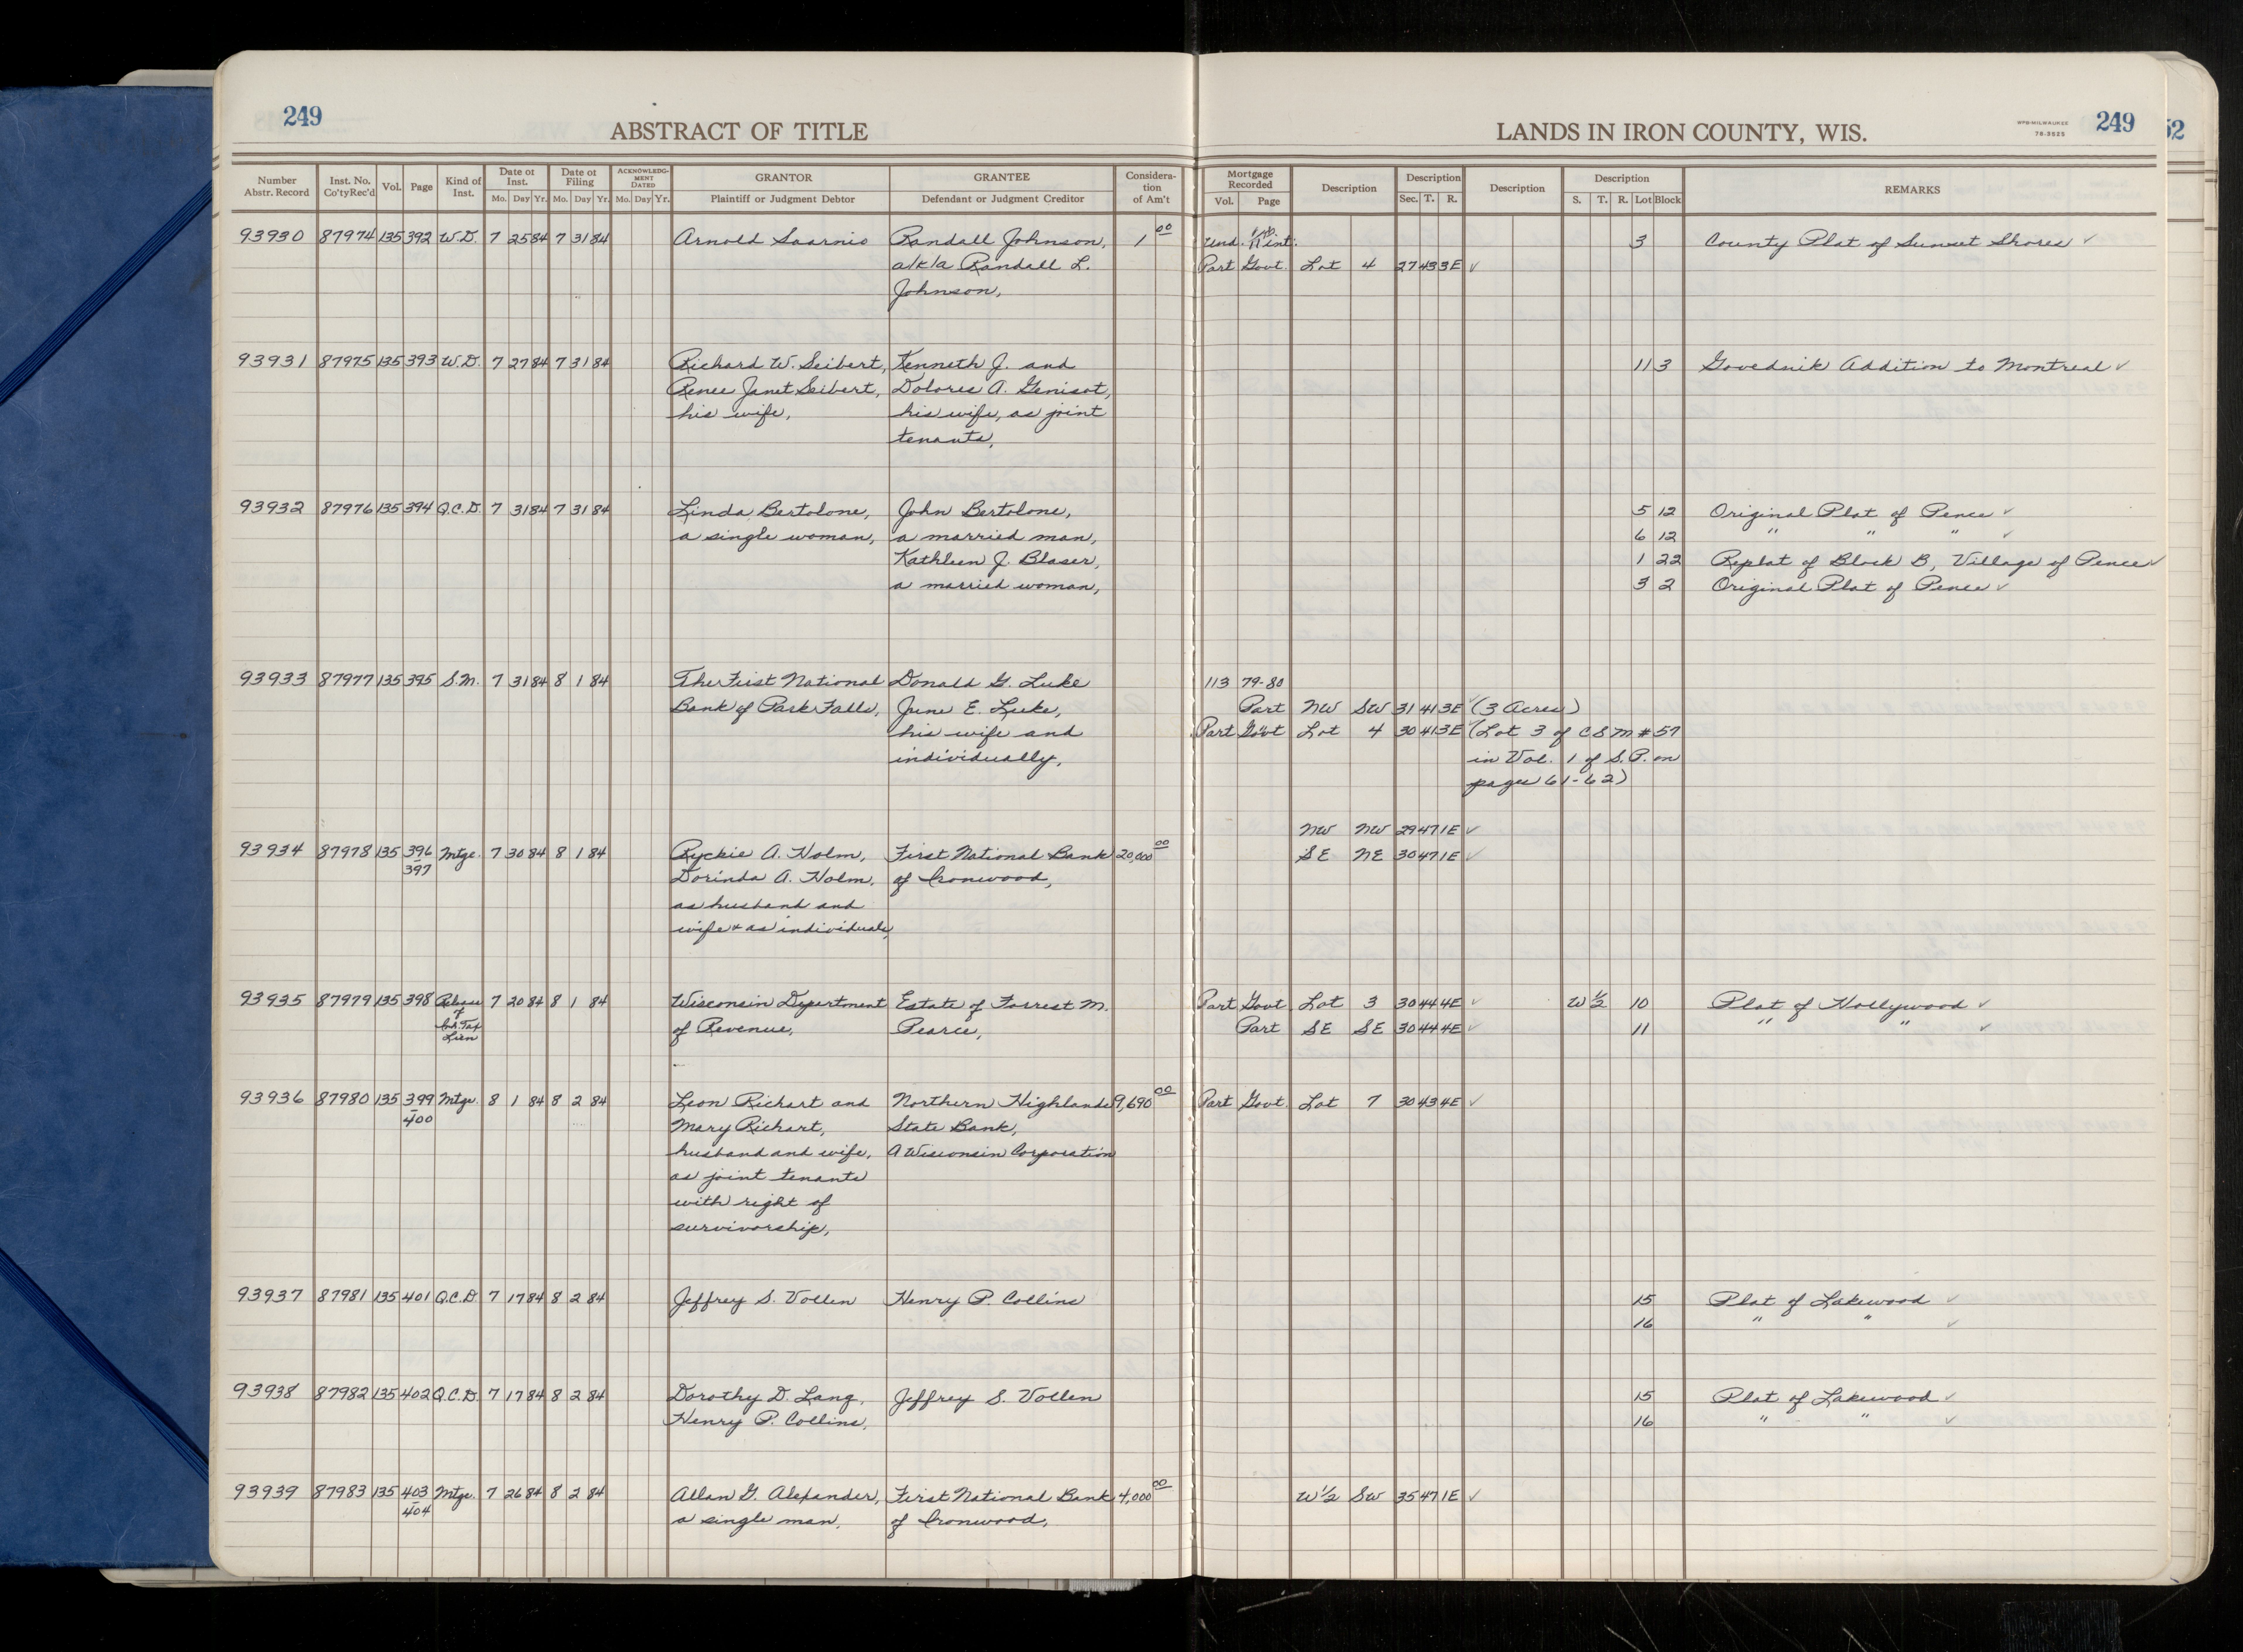 249
ABSTRACT OF TITLE
LANDS IN IRON COUNTY, WIS.
WPB-MILWAUKEE
78-3525
249
52
Number Abstr. Record
Inst. No. Co'ty Rec'd
Vol.
Page
Kind of Inst.
Date of Inst.
Mo. Day Yr.
Date of Filing
Mo. Day Yr.
ACKNOWLEDGMENT DATED
Mo. Day Yr.
GRANTOR
Plaintiff or Judgment Debtor
GRANTEE
Defendant or Judgment Creditor
Consideration of Am't
Mortgage Recorded
Vol. Page
Description
Description
Sec. T. R.
Description
Description
S. T. R. Lot Block
REMARKS
93930 87974 135 392 W.D. 7 25 84 7 31 84 Arnold Saarnio Randall Johnson, 1 00 Und. int. 3 County Plat of Sunset Shores ✓
a/k/a Randall L. Part Govt. Lot 4 27 43 3E ✓
Johnson,
93931 87975 135 393 W.D. 7 27 84 7 31 84 Richard W. Seibert, Kenneth J. and 11 3 Govednik Addition to Montreal ✓
Renee Janet Seibert, Dolores A. Genisot,
his wife, his wife, as joint
tenants,
93932 87976 135 394 Q.C.D. 7 31 84 7 31 84 Linda Bertolone, John Bertolone, 5 12 Original Plat of Pence ✓
a single woman, a married man, 6 12 " " " ✓
Kathleen J. Blaser, 1 22 Replat of Block B, Village of Pence ✓
a married woman, 3 2 Original Plat of Pence ✓
93933 87977 135 395 S.M. 7 31 84 8 1 84 The First National Donald G. Luke 113 79-80
Bank of Park Falls, June E. Luke, Part NW SW 31 41 3E ✓ (3 Acres)
his wife and Part Gov't Lot 4 30 41 3E ✓ (Lot 3 of CSM #57
individually, in Vol. 1 of S.P. on
pages 61-62)
NW NW 29 47 1E ✓
93934 87978 135 396-397 Mtge. 7 30 84 8 1 84 Ryckie A. Holm, First National Bank 20,000 00 SE NE 30 47 1E ✓
Dorinda A. Holm, of Ironwood,
as husband and
wife & as individuals,
93935 87979 135 398 Release of Inh. Tax Lien 7 20 84 8 1 84 Wisconsin Department Estate of Forrest M. Part Govt. Lot 3 30 44 4E ✓ W 1/2 10 Plat of Hollywood ✓
of Revenue, Pearce, Part SE SE 30 44 4E ✓ 11 " " ✓
93936 87980 135 399-400 Mtge. 8 1 84 8 2 84 Leon Richart and Northern Highlands 9,690 00 Part Govt. Lot 7 30 43 4E ✓
Mary Richart, State Bank,
husband and wife, A Wisconsin Corporation
as joint tenants
with right of
survivorship,
93937 87981 135 401 Q.C.D. 7 17 84 8 2 84 Jeffrey S. Vollen Henry P. Collins 15 Plat of Lakewood ✓
16 " " ✓
93938 87982 135 402 Q.C.D. 7 17 84 8 2 84 Dorothy D. Lang, Jeffrey S. Vollen 15 Plat of Lakewood ✓
Henry P. Collins, 16 " " ✓
93939 87983 135 403-404 Mtge. 7 26 84 8 2 84 Allan G. Alexander, First National Bank 4,000 00 W 1/2 SW 35 47 1E ✓
a single man, of Ironwood,